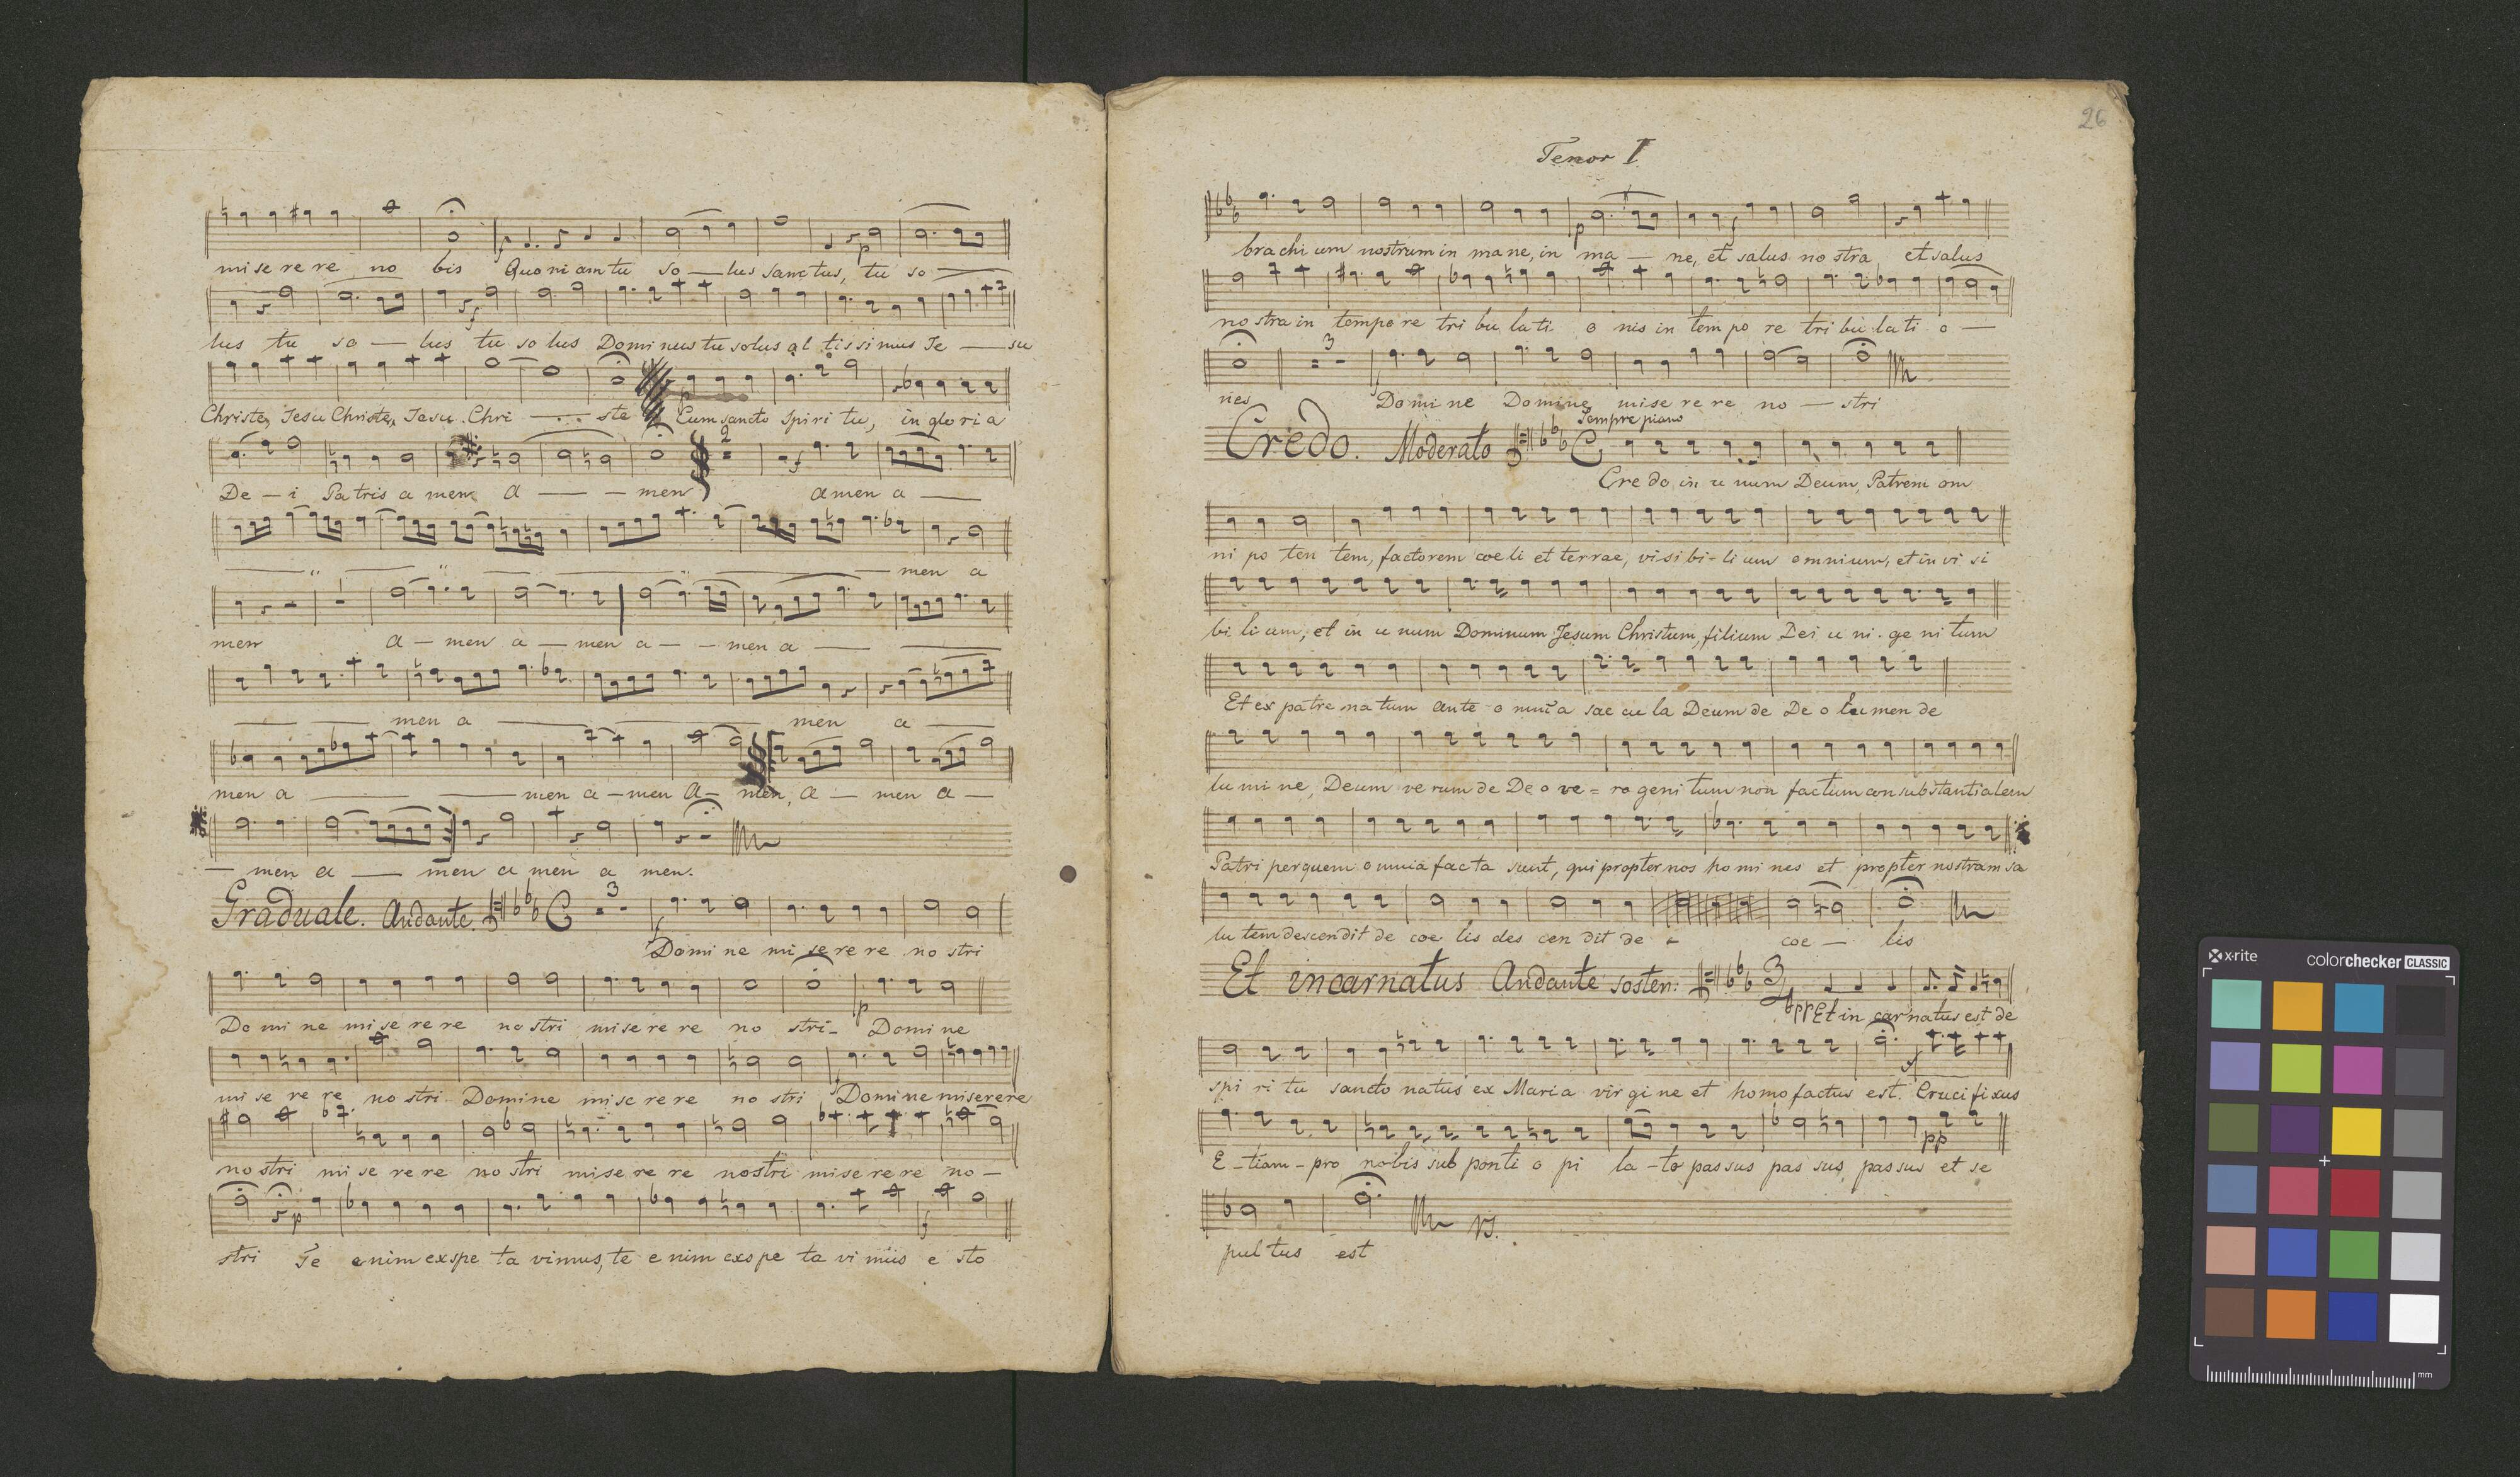 mi se re re no bis Quo ni am tu so — lus sanctus, tu so —
lus tu so — lus tu so lus Domi nus tu solus al tis si mus Je — su
Christe, Jesu Christe, Jesu Chri — ste Cum sancto Spiri tu, in glo ri a
De — i Patris a men A — — men amen a —
men a
men a — men a — men a — — men a —
men a men a —
men a — men a — men A — men, a — men a —
— men a — men a men a men.
Graduale. Andante C 3
Domi ne mi se re re no stri
Do mi ne mi se re re no stri mi se re re no stri- Domi ne
mi se re re no stri Domine mi se re re no stri Domi ne miserere
no stri mi se re re no stri mi se re re nostri mi se re re no —
stri Te enim exspe ta vimus, te e nim exspe ta vi mus e sto
26
Tenor I
brachi um nostrum in mane, in ma — ne, et salus no stra et salus
no stra in tempo re tri bu lati o nis in tem po re tri bu lati o —
nis Domi ne Domine mise re re no — stri
Sempre piano
Credo. Moderato C
Cre do in u num Deum, Patrem om
ni po ten tem, factorem coe li et terrae, vi si bi-li um omnium, et in vi si
bi li um, et in u num Dominum Jesum Christum, filium Dei u ni. ge ni tum
Et ex patre na tum ante o mnia sae cu la Deum de De o lumen de
lu mi ne, Deum ve rum de De o ve = ro geni tum non factum consubstantialem
Patri per quem omnia facta sunt, qui propter nos ho mi nes et propter nostram sa
lu tem descendit de coe lis des cen dit de coe — lis
Et incarnatus Andante sosten: 3/4
pp Et in carnatus est de
spi ri tu sancto natus ex Maria vir gi ne et homo factus est. Crucifixus
E - tiam - pro nobis sub ponti o pi la - to passus pas sus, passus et se
pp
pul tus est
VS.
x-rite colorchecker CLASSIC
mm